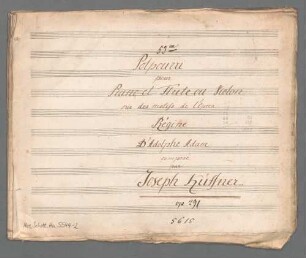 53me
Potpourri
pour
Piano et Flûte ou Violon
sur des motifs de l'Opera
Régine
D'Adolphe Adam
composé
par
Joseph Küffner
op. 291
5615